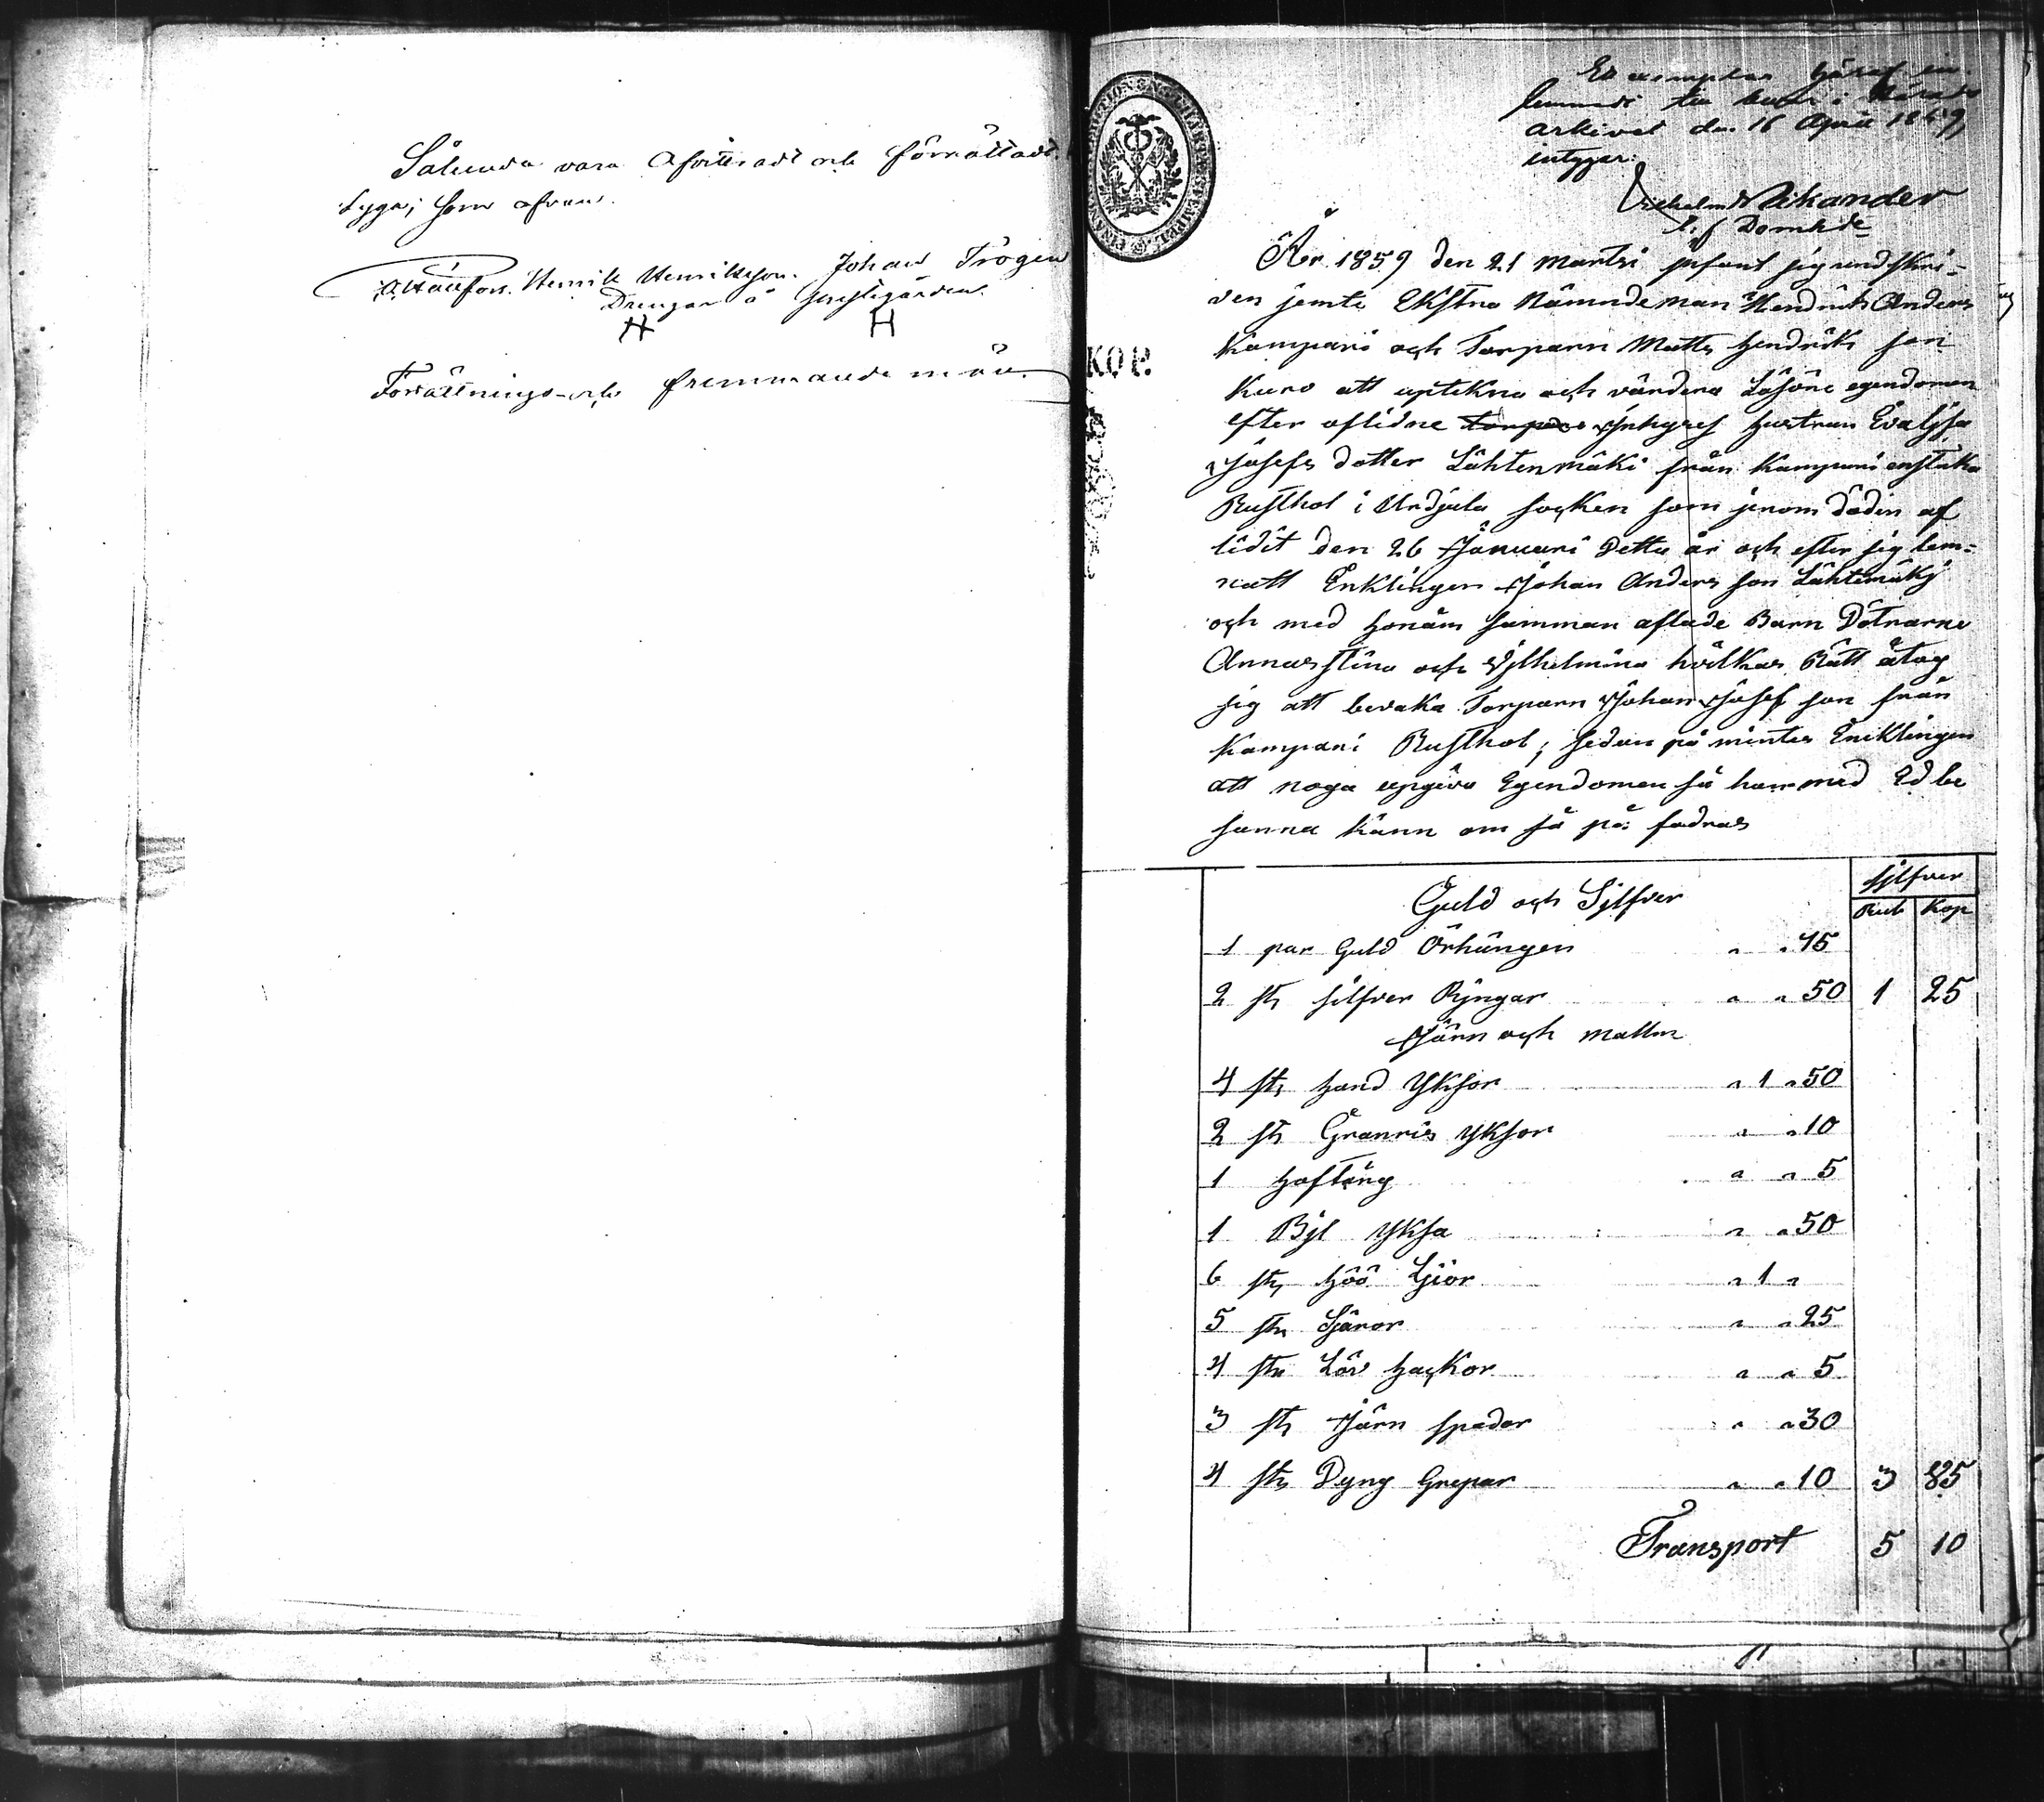 Således vara  och förrättadt
tyga, som ofvan.
Henrik Henriksson. Johan Trögen
Drengar å 
Förrättnings- och främmande män.
KOP.
Ex emplar häraf in
lemnadt till  i Härads
arkivet den 16 April 1859,
intygar:
Wilhelm Wikander
Domhde
År 1859 den 21 Martsi infant sig undskri-
ven jemte Ekstra Nämndeman Hendrik Anders
Kampari och Torparn Matts Hendrik son
Kuro att uptekna och värdera Lösöre egendomen
efter aflidne Inhyses hustrun Evalisa
Josefs dotter Lähtenmäki från Kampari enstaka
Rusthol i Urdjala socken som jenom döden af
lidit den 26 Januari detta år och efter sig lem-
natt Enklingen Johan Anders son Lähtemäki
och med honom samman aflade Barn Dötrarne
Annastina och Vilhelmina hvilkas Rätt åtog
sig att bevaka Torparn Johan Josef son från
Kampari Rusthol; sedan på mintes Enklingen
att noga upgiva Egendomen så han med Ed be
sanna kann om så på fodras
Guld och Silfver
silfver
Rub Kop
1 par Guld Örhängen " " 75
2 st silfver Ryngar " " 50 1 25
Järn och mallm
4 st hand Yksor " 1 " 50
2 st Granris yksor " " 10
1 hoftång " " 5
1 Bjl yksa " " 50
6 st höö Liior " 1 "
5 st Skäror " " 25
4 st Löv hackor " " 5
3 st Järn spadar " " 30
4 st Dyng Grepar " " 10 3 85
Transport 5 10